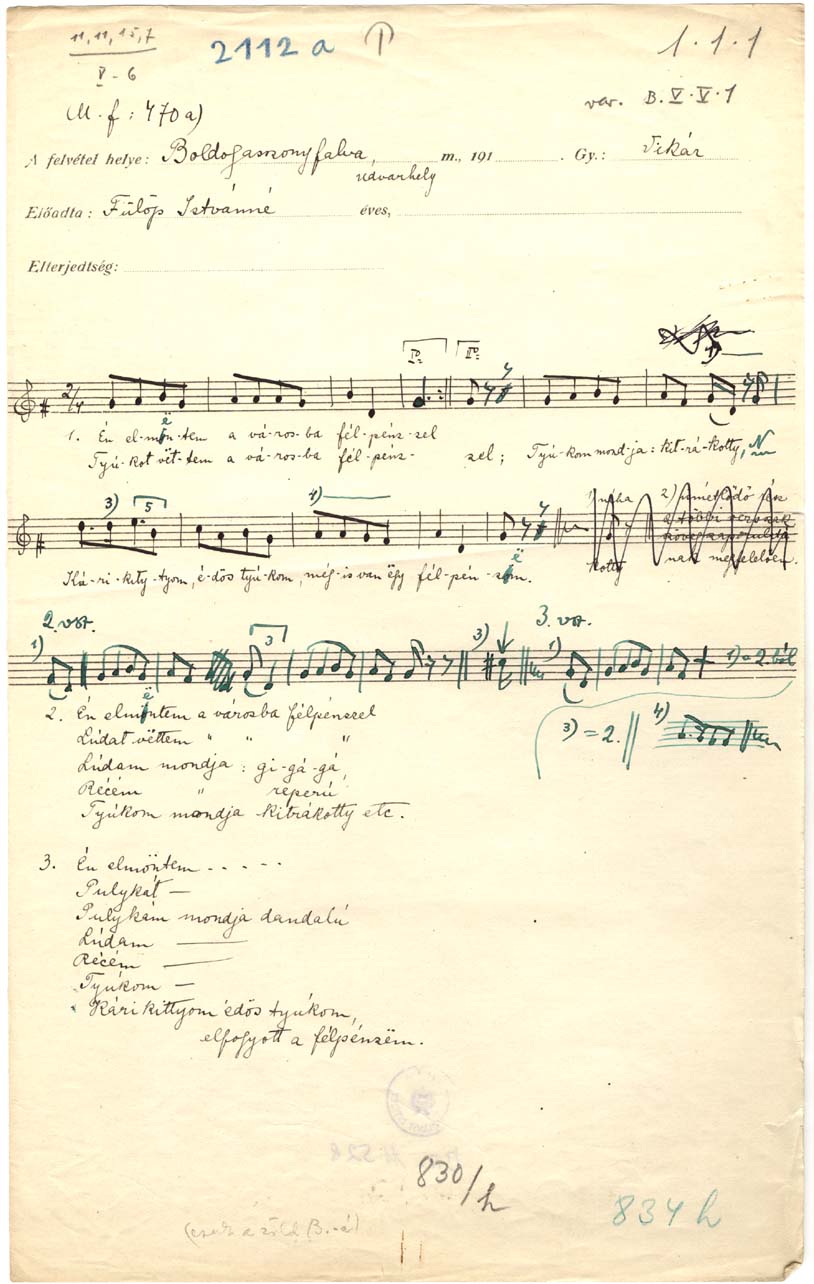 11, 11, 15, 7
V - 6
2112 a
1 . 1 . 1
(M. f : 470 a)
var. B. V . V . 1
A felvétel helye: Boldogasszonyfalva, m., 191 . Gy.: Vikár
Udvarhely
Előadta: Fülöp Istvánné éves,
Elterjedtség:
Iº. IIº.
2/4
1. Én el-mön-tem a vá-ros-ba fél-pénz-zel
Tyú-kot vët-tem a vá-ros-ba fél-pénz- zel; Tyú-kom mond-ja: kit-rá-kotty,
3) 5 4)
1) néha 2) ismétlődő
kotty nak megfelelően.
Ká-ri-kity-tyom, é-dös tyú-kom, még-is van ëgy fél-pén-zëm.
2. vsz. 3. vsz.
1) 3 3) 1) 1) = 2.ból
3) = 2. 4)
2. Én elmöntem a városba félpénzzel
Lúdat vëttem " " "
Lúdam mondja : gi-gá-gá,
Récém " reperú
Tyúkom mondja kitrákotty etc.
3. Én elmöntem . - . - -
Pulykát —
Pulykám mondja dandalú
Lúdam —
Récém —
Tyúkom —
Kárikittyom édös tyúkom,
elfogyott a félpénzëm.
830/h
834 h